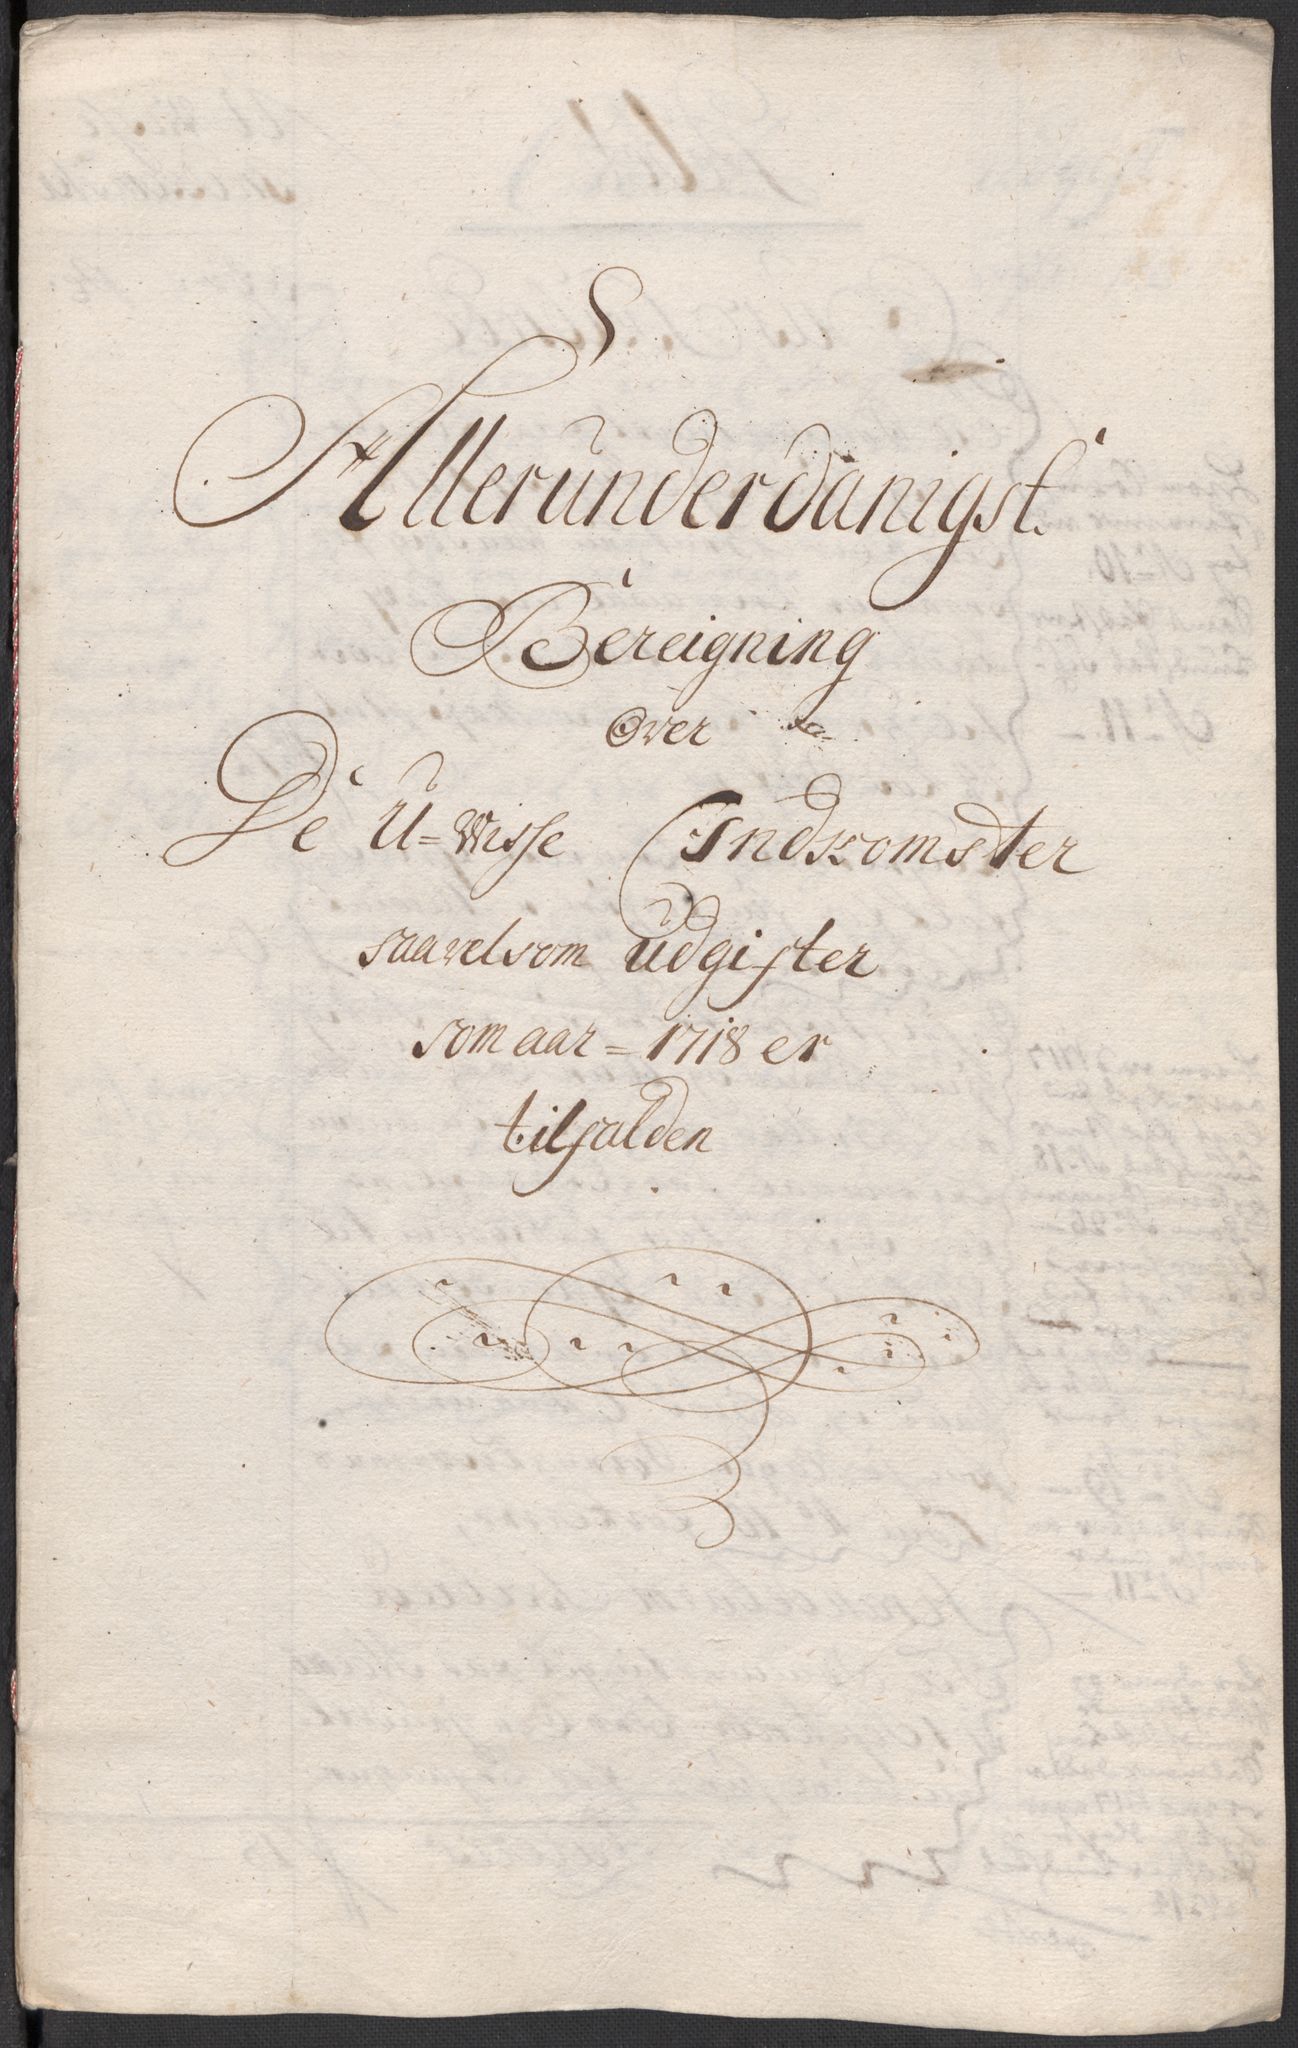 Allerunderdanigst
Bereigning
Over
De U=Wisse Indkomster
saavelsom Udgifter
som aar = 1718 er
tilfalden